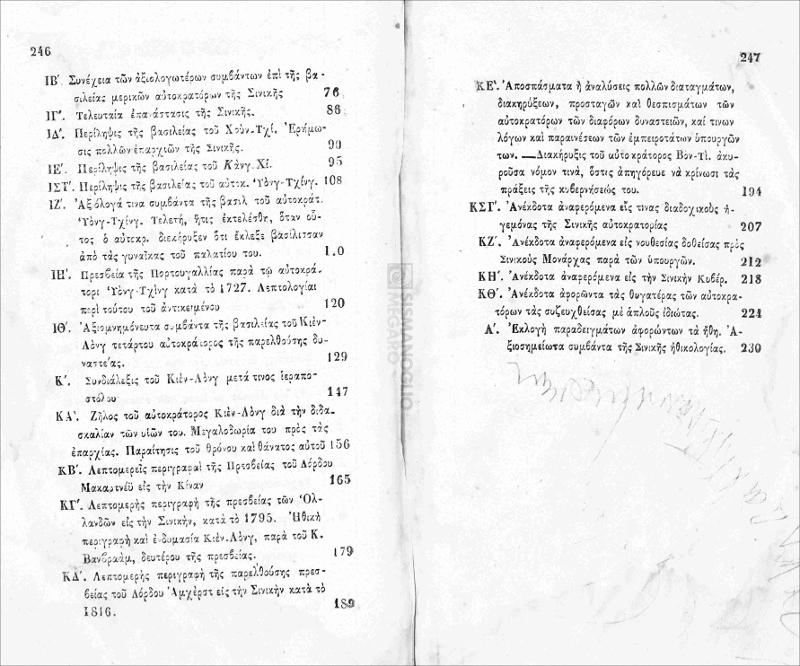 246
ΙΒ΄ Συνέχεια τῶν ἀξιολογωτέρων συμβάντων ἐπὶ τῆς βα-
σιλείας μερικῶν αὐτοκρατόρων τῆς Σινικῆς 76
ΙΓ΄. Τελευταία ἐπανάστασις τῆς Σινικῆς. 86
ΙΔ΄. Περίληψις τῆς βασιλείας τοῦ Χοὺν-Τχί. Ἐρήμω-
σις πολλῶν ἐπαρχιῶν τῆς Σινικῆς. 90
ΙΕ΄. Περίληψις τῆς βασιλείας τοῦ Κὰνγ Χί. 95
ΙΣΤ΄. Περίληψις τῆς βασιλείας τοῦ αὐτοκ. Ὑὸνγ-Τχίνγ. 108
ΙΖ΄. Ἀξιόλογά τινα συμβάντα τῆς βασιλ τοῦ αὐτοκράτ.
Ὑὸνγ-Τχίνγ. Τελετή, ἥτις ἐκτελέσθη, ὅταν οὗ-
τος ὁ αὐτοκρ. διεκήρυξεν ὅτι ἔκλεξε βασίλισσαν
ἀπὸ τὰς γυναῖκας τοῦ παλατίου του. 1.0
ΙΗ΄. Πρεσβεία τῆς Πορτουγαλλίας παρὰ τῷ αὐτοκρά-
τορι Ὑὸνγ-Τχὶνγ κατὰ τὸ 1727. Λεπτολογίαι
περὶ τούτου τοῦ ἀντικειμένου 120
ΙΘ΄. Ἀξιομνημόνευτα συμβάντα τῆς βασιλείας τοῦ Κιὲν-
Λὸνγ τετάρτου αὐτοκράτορος τῆς παρελθούσης δυ-
ναστείας. 129
Κ΄. Συνδιάλεξις τοῦ Κιὲν-Λὸνγ μετά τινος ἱεραπο-
στόλου 147
ΚΑ΄. Ζῆλος τοῦ αὐτοκράτορος Κιὲν-Λὸνγ διὰ τὴν διδα-
σκαλίαν τῶν υἱῶν του. Μεγαλοδωρία του πρὸς τὰς
ἐπαρχίας. Παραίτησις τοῦ θρόνου καὶ θάνατος αὐτοῦ 156
ΚΒ΄. Λεπτομερεῖς περιγραφαὶ τῆς Πρεσβείας τοῦ Λόρδου
Μακαρτνέϋ εἰς τὴν Κίναν 165
ΚΓ΄. Λεπτομερὴς περιγραφὴ τῆς πρεσβείας τῶν Ὁλ-
λανδῶν εἰς τὴν Σινικήν, κατὰ τὸ 1795. Ἠθικὴ
περιγραφὴ καὶ ἐνδυμασία Κιὲν-Λὸνγ, παρὰ τοῦ Κ.
Βανβραάμ, δευτέρου τῆς πρεσβείας. 179
ΚΔ΄. Λεπτομερὴς περιγραφὴ τῆς παρελθούσης πρεσ-
βείας τοῦ Λόρδου Ἀμχέρστ εἰς τὴν Σινικὴν κατὰ τὸ
1816. 189
247
ΚΕ΄. Ἀποσπάσματα ἢ ἀναλύσεις πολλῶν διαταγμάτων,
διακηρύξεων, προσταγῶν καὶ θεσπισμάτων τῶν
αὐτοκρατόρων τῶν διαφόρων δυναστειῶν, καί τινων
λόγων καὶ παραινέσεων τῶν ἐμπειροτάτων ὑπουργῶν
των. —Διακήρυξις τοῦ αὐτοκράτορος Βον-Τὶ. ἀκυ-
ροῦσα νόμον τινὰ, ὅστις ἀπηγόρευε νὰ κρίνωσι τὰς
πράξεις τῆς κυβερνήσεώς του. 194
ΚΣΤ΄. Ἀνέκδοτα ἀναφερόμενα εἴς τινας διαδοχικοὺς ἡ-
γεμόνας τῆς Σινικῆς αὐτοκρατορίας 207
ΚΖ΄. Ἀνέκδοτα ἀναφερόμενα εἰς νουθεσίας δοθείσας πρὸς
Σινικοὺς Μονάρχας παρὰ τῶν ὑπουργῶν. 212
ΚΗ΄. Ἀνέκδοτα ἀναφερόμενα εἰς τὴν Σινικὴν Κυβέρ. 218
ΚΘ΄. Ἀνέκδοτα ἀφορῶντα τὰς θυγατέρας τῶν αὐτοκρα-
τόρων τὰς συζευχθείσας μὲ ἁπλοῦς ἰδιώτας. 224
Λ΄. Ἐκλογὴ παραδειγμάτων ἀφορώντων τὰ ἤθη. Ἀ-
ξιοσημείωτα συμβάντα τῆς Σινικῆς ἠθικολογίας. 230
SISMANOGLIO
MEGARO